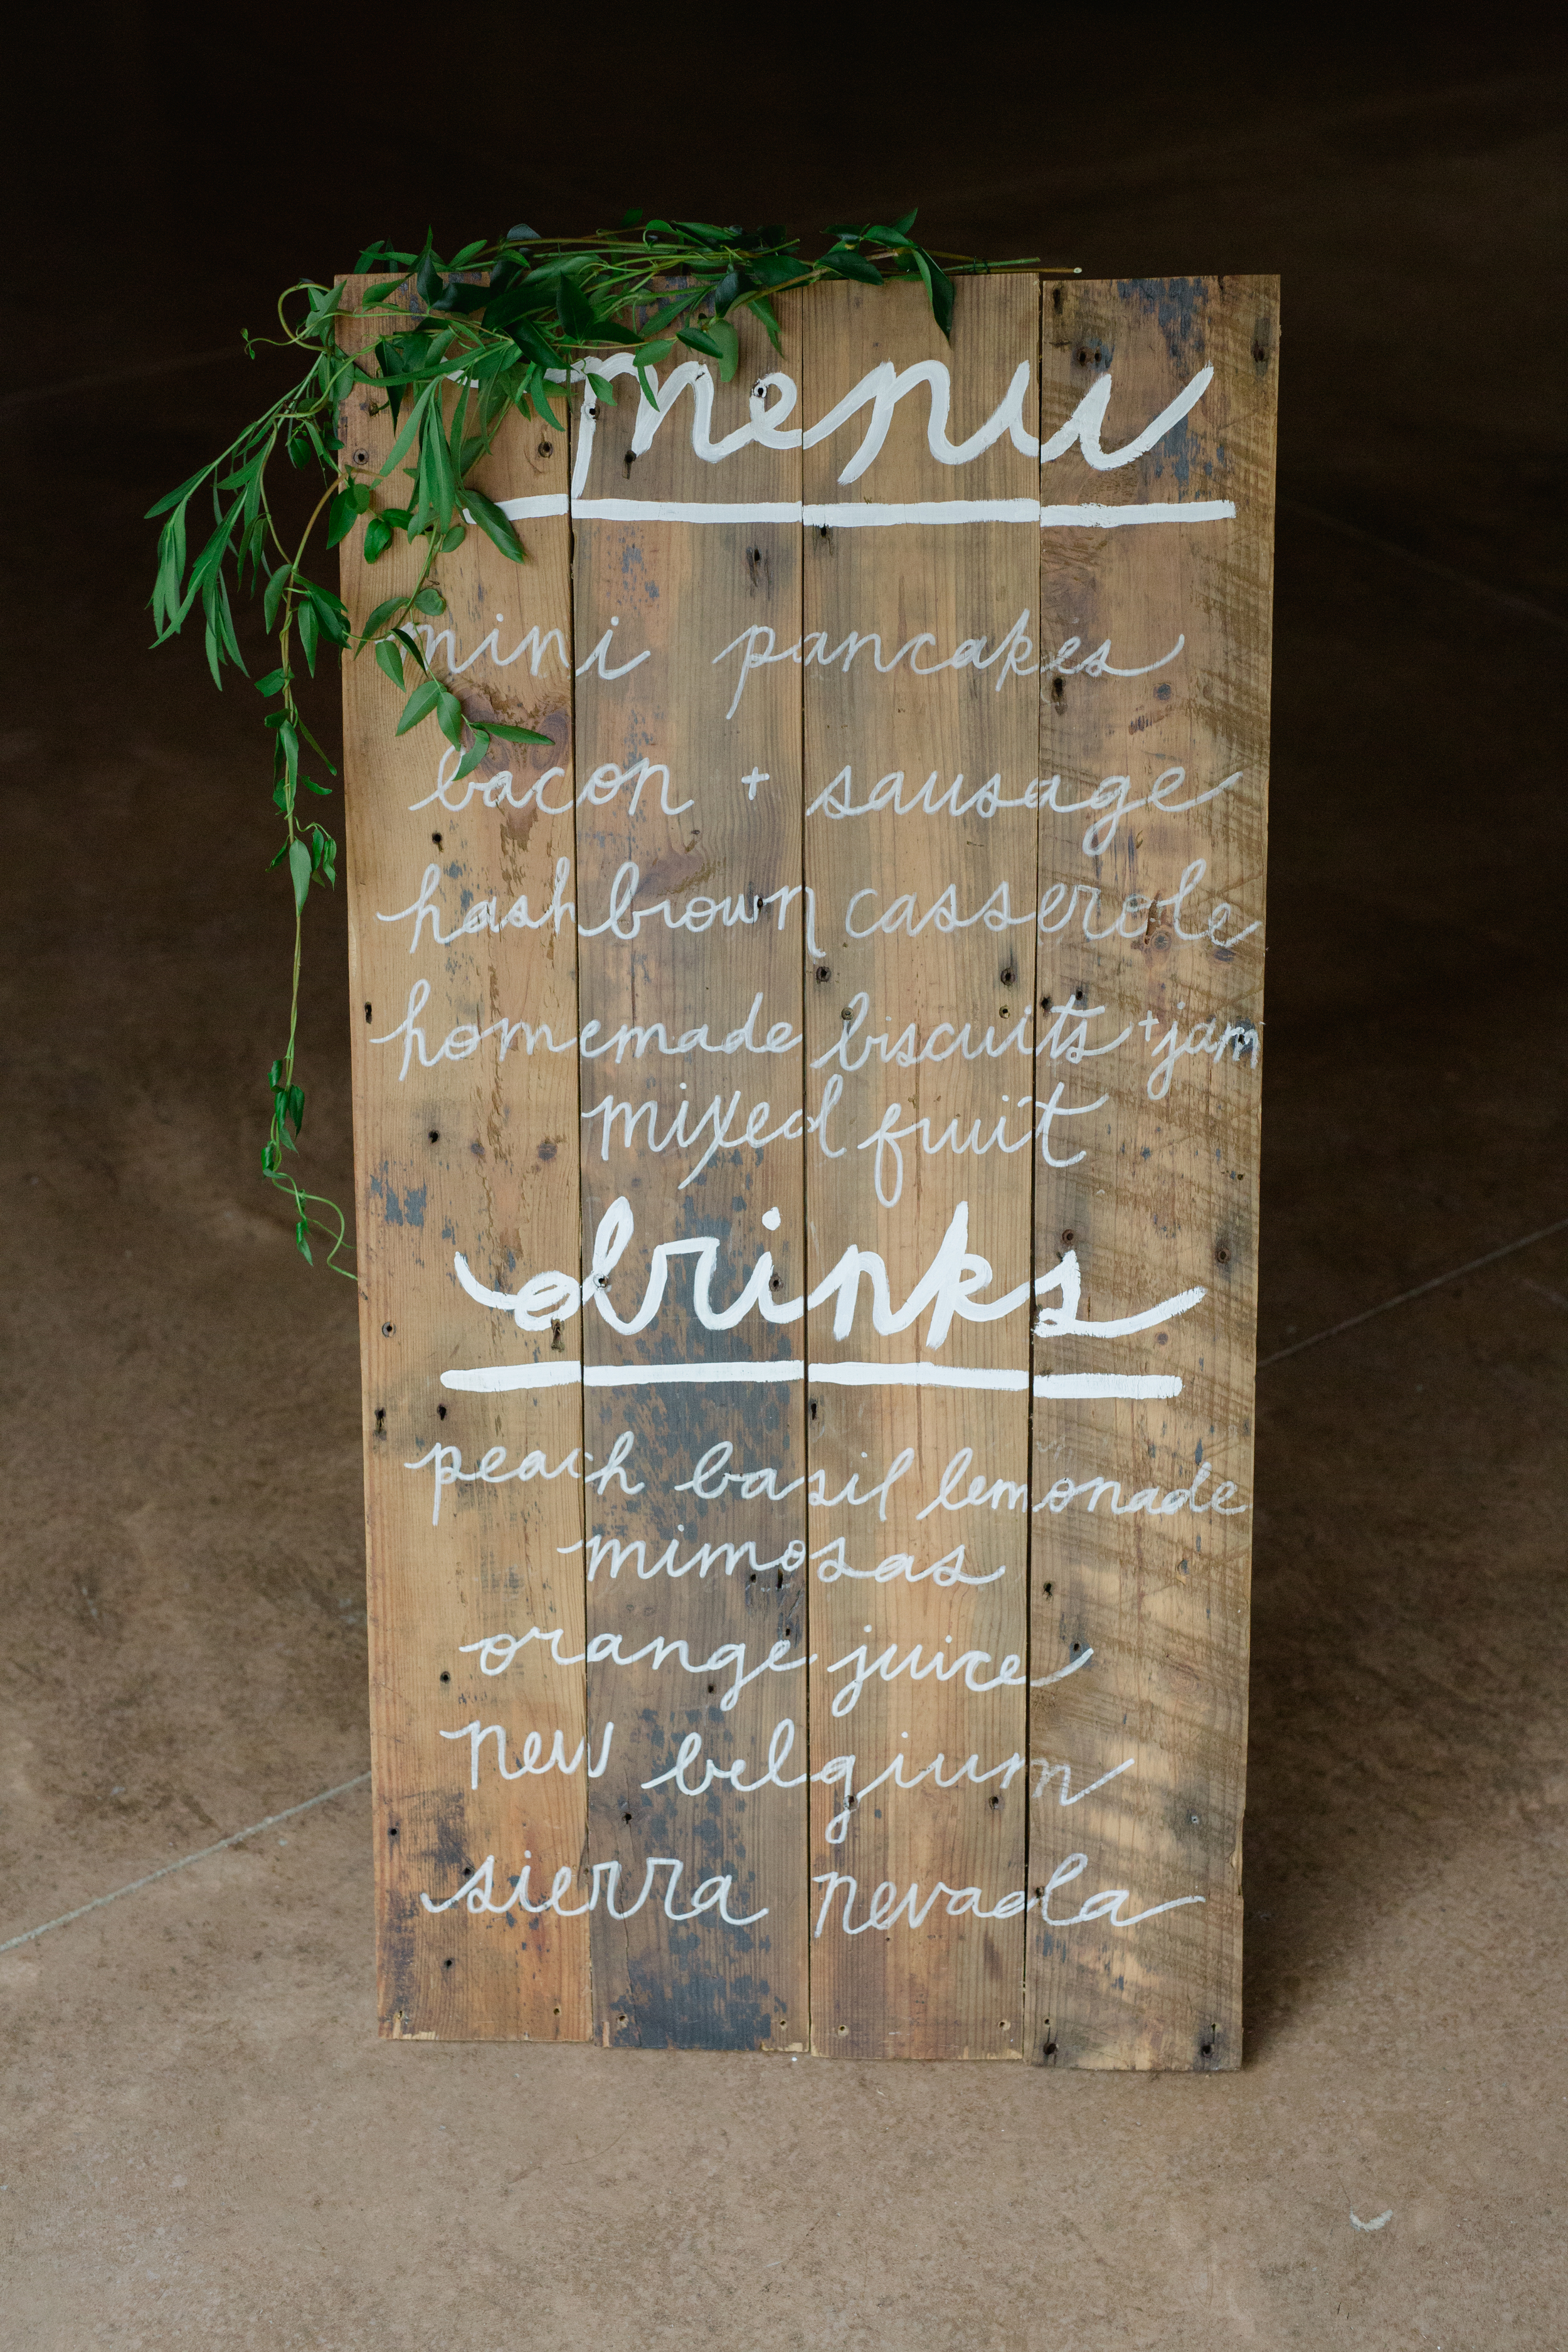 menu
mini pancakes
bacon + sausage
hashbrown casserole
homemade biscuits + jam
mixed fruit
drinks
peach basil lemonade
mimosas
orange juice
new belgium
sierra nevada